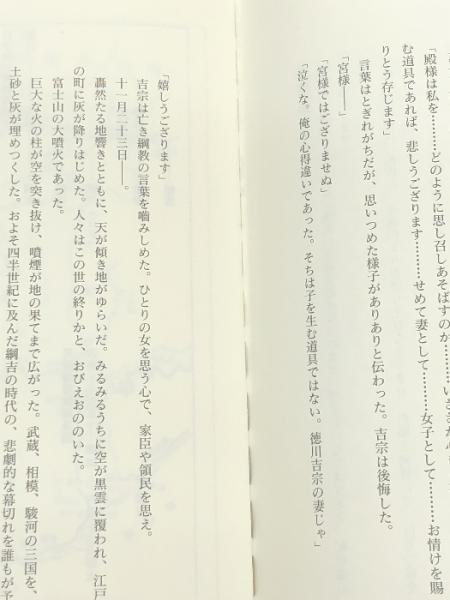 「殿様は私を………どのように思し召しあそばすのか………
む道具であれば、悲しうござります………せめて妻として………女子として………お情けを賜
りとう存じます」
言葉はとぎれがちだが、思いつめた様子がありありと伝わった。吉宗は後悔した。
「宮様――」
「宮様ではござりませぬ」
「泣くな。俺の心得違いであった。そちは子を生む道具ではない。徳川吉宗の妻じゃ」
「嬉しうござります」
吉宗は亡き綱教の言葉を嚙みしめた。ひとりの女を思う心で、家臣や領民を思え。
十一月二十三日――。
轟然たる地響きとともに、天が傾き地がゆらいだ。みるみるうちに空が黒雲に覆われ、江戸
の町に灰が降りはじめた。人々はこの世の終りかと、おびえおののいた。
富士山の大噴火であった。
巨大な火の柱が空を突き抜け、噴煙が地の果てまで広がった。武蔵、相模、駿河の三国を、
土砂と灰が埋めつくした。およそ四半世紀に及んだ綱吉の時代の、悲劇的な幕切れを誰もが予